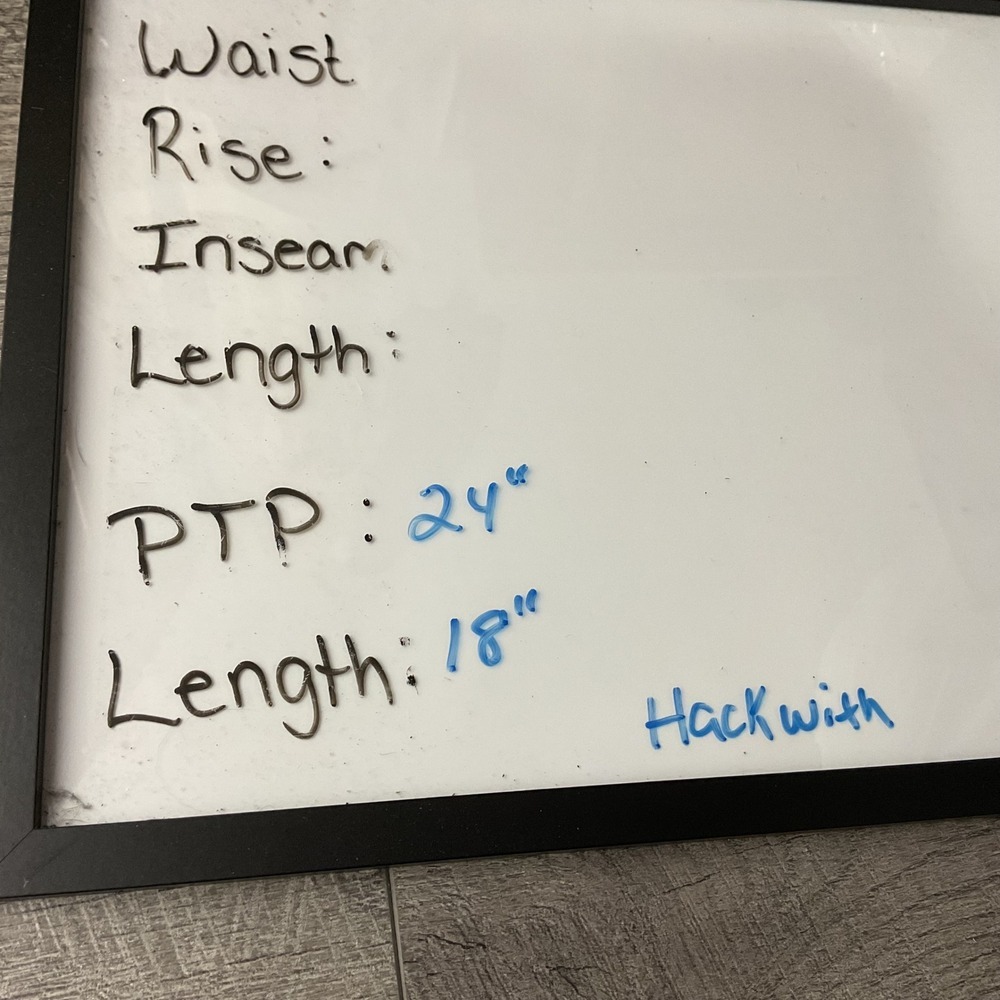 Waist
Rise:
Inseam
Length:
PTP: 24"
Length: 18"
Hackwith